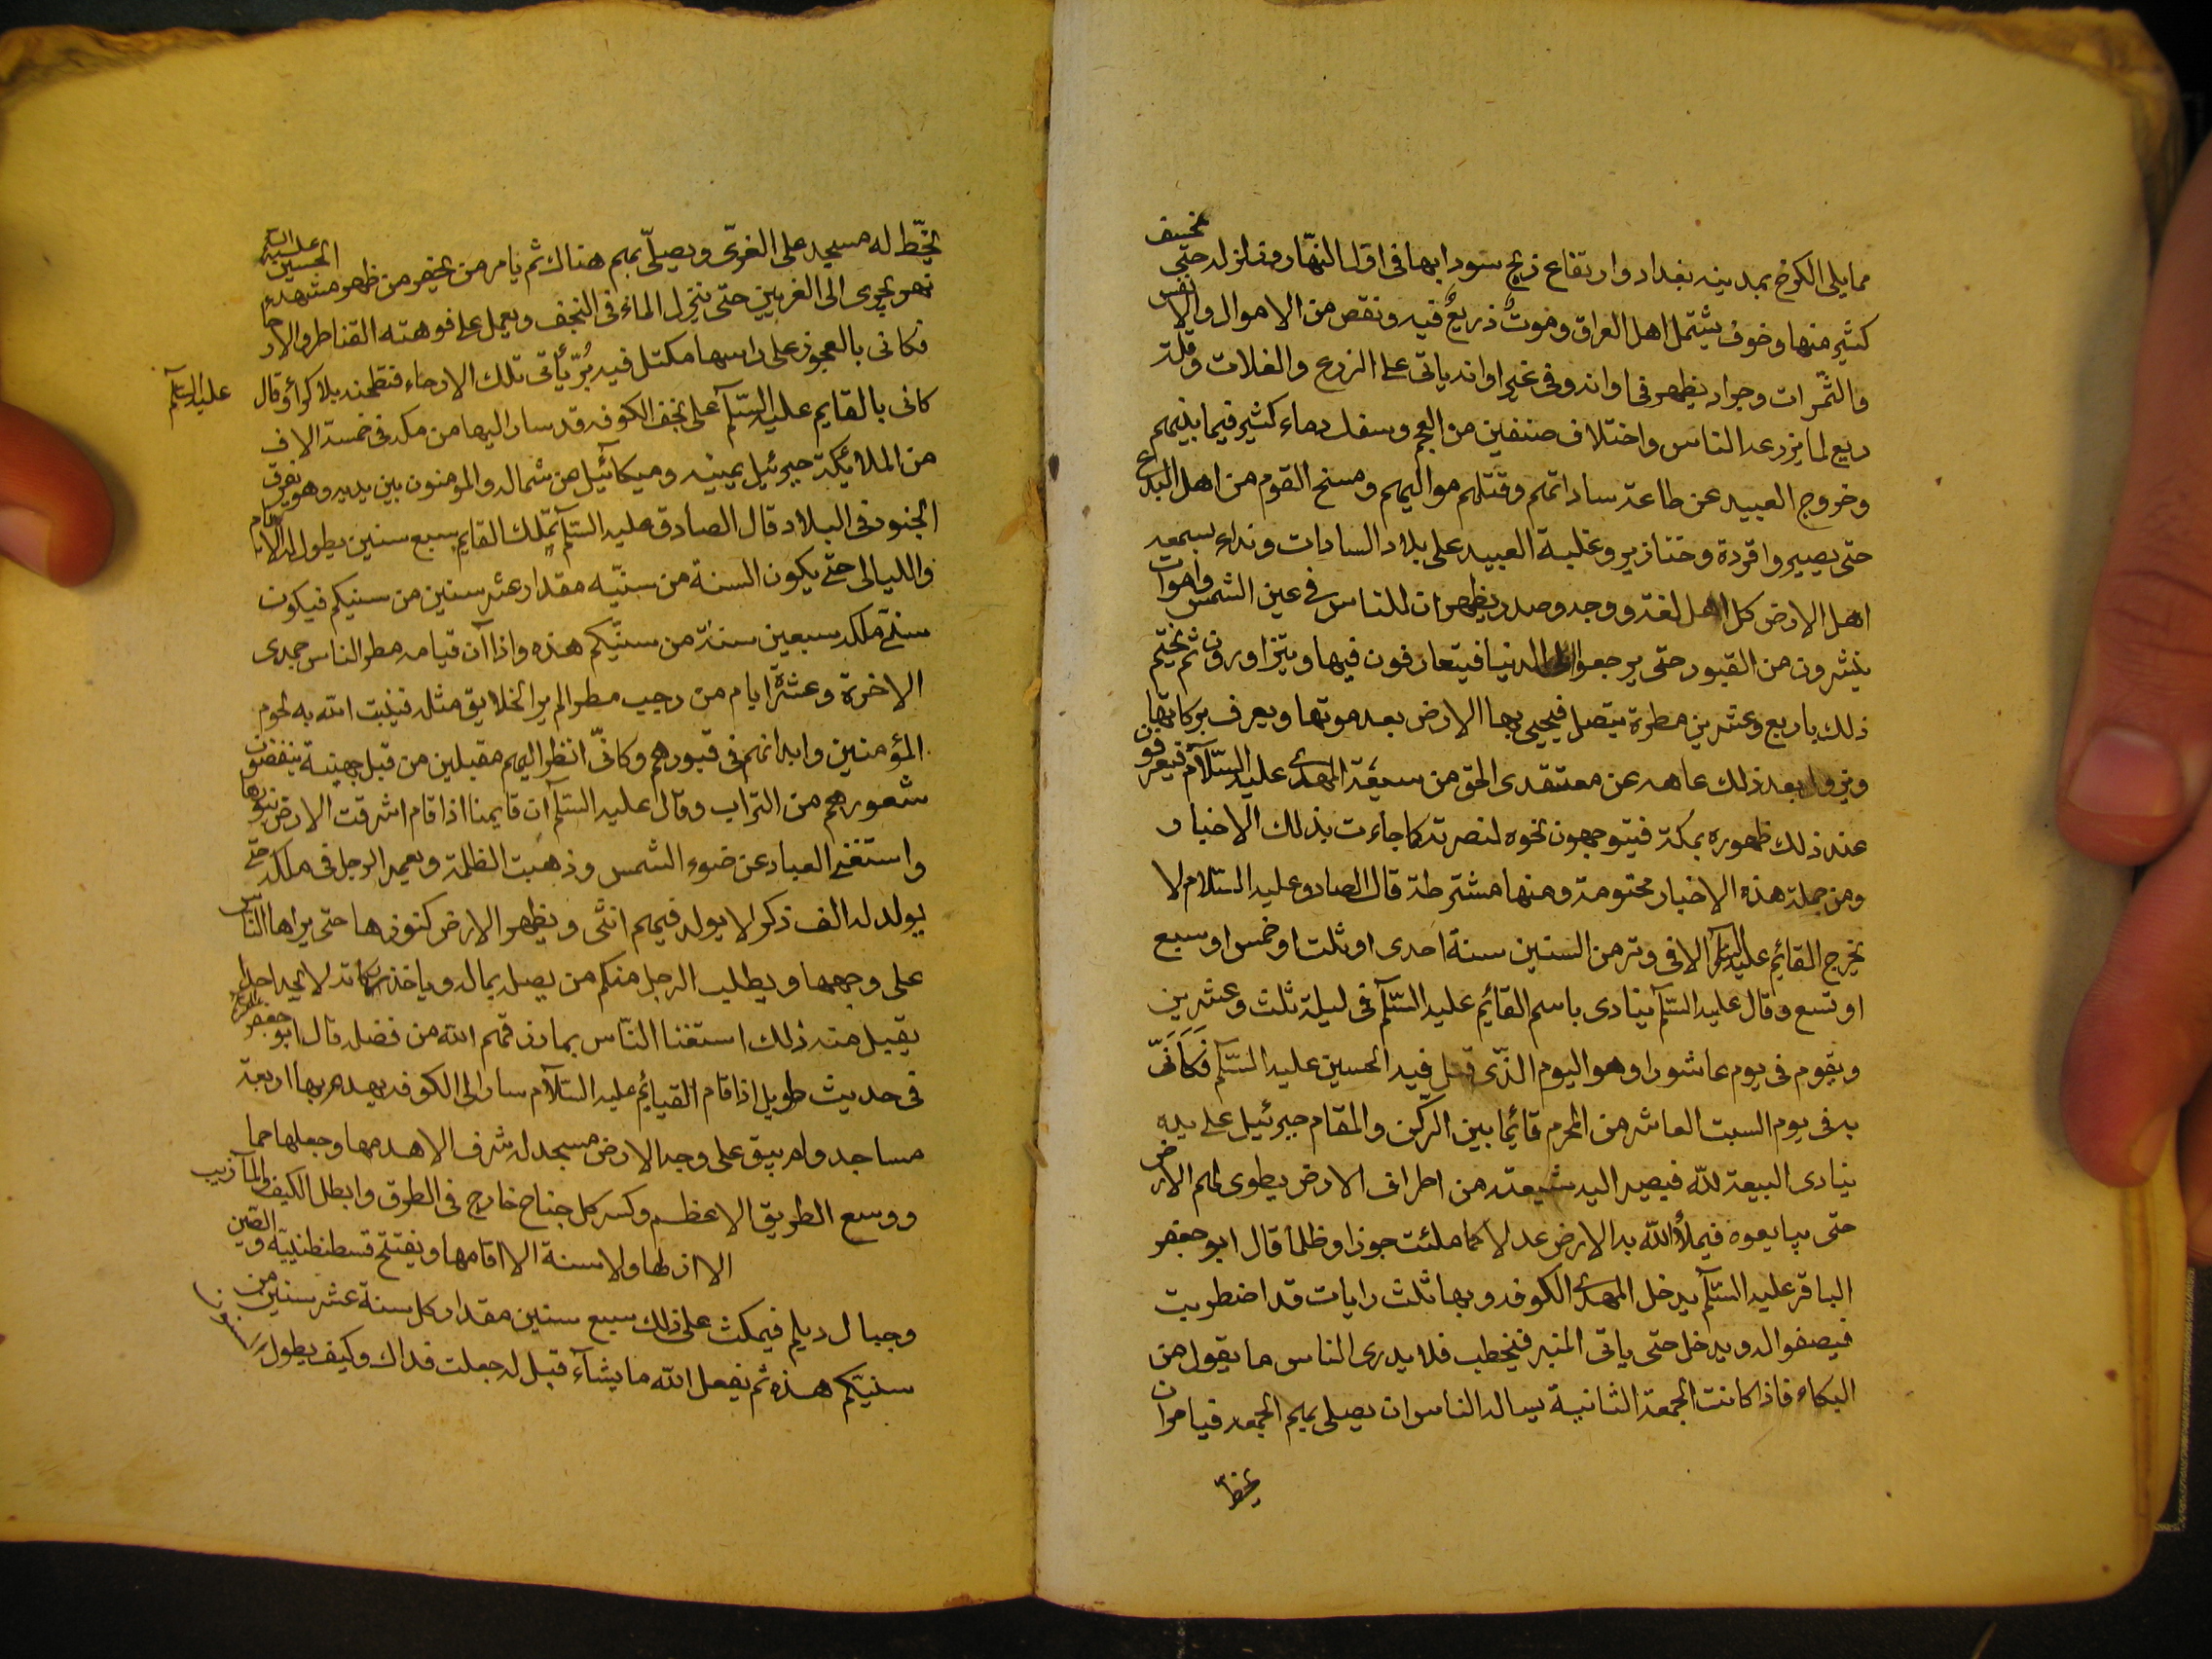 مما يلى الكرخ بمدينه بغداد وارتفاع ريح سودا بها فى اول النهار وزلزله حتى يخسف
كثير منها وخوف يشتمل اهل العراق وموتٌ ذريعٌ فيه ونقص من الاموال والانفس
والثمرات وجراد يظهر فى اوانه وفى غير اوانه ياتى على الزرع والغلات وقلة
ريع لما يزرعه الناس واختلاف صنفين من العجم وسفك دماء كثير فيما بينهم
وخروج العبيد عن طاعة ساداتهم وقتلهم مواليهم ومسخ القوم من اهل البدع
حتى يصيروا قردة وخنازير وغلبة العبيد على بلاد السادات ونداء يسمعه
اهل الارض كل اهل لغة ووجه وصدر يظهران للناس فى عين الشمس واموات
ينشرون من القبور حتى يرجعوا الى الدنيا فيتعارفون فيها ويتزاورون ثم يختم
ذلك باربع وعشرين مطرة يتصل فيحيى بها الارض بعد موتها ويعرف بركاتها
ويزول بعد ذلك عاهه عن معتقدى الحق من شيعة المهدى عليه السلام فيعرفون
عند ذلك ظهوره بمكة فيتوجهون نحوه لنصرته كما جاءت بذلك الاخبار
ومن جملة هذه الاخبار محتومة ومنها مشترطة قال الصادق عليه السلام لا
يخرج القائم عليه السلم الا فى وتر من السنين سنة احدى او ثلث او خمس او سبع
او تسع وقال عليه السلم ينادى باسم القائم عليه السلم فى ليلة ثلث وعشرين
ويقوم فى يوم عاشورا وهو اليوم الذى قتل فيه الحسين عليه السلم فَكَاَنّى
به فى يوم السبت العاشر من المحرم قائما بين الركن والمقام جبرئيل على يده
ينادى البيعة لله فيصير اليه شيعته من اطراف الارض يطوى لهم الارض
حتى يبايعوه فيملأ الله به الارض عدلا كما ملئت جورا وظلما قال ابو جعفر
الباقر عليه السلم يدخل المهدى الكوفه وبها ثلث رايات قد اضطربت
فيصفوا له ويدخل حتى ياتى المنبر فيخطب فلا يدرى الناس ما يقول من
البكاء فاذا كانت الجمعة الثانية يساله الناس ان يصلى بهم الجمعه فيامر ان
يخطّ
يخطّ له مسجد على الغرىّ ويصلّى بهم هناك ثم يامر من يحفر من ظهر مشهد الحسين عليه السلم
نهر يجرى الى الغريين حتى ينزل الماء فى النجف ويعمل على فوهته القناطر والارحا
فكانى بالعجوز على راسها مكتل فيه بُرّ يأتى تلك الارحاء فتطحنه بلا كرأ وقال عليه السلم
كانى بالقايم عليه السلم على نجف الكوفه قد سار اليها من مكه فى خمسة الاف
من الملائكة جبرئيل يمينه وميكائيل من شماله والمؤمنون بين يديه وهو يفرق
الجنود فى البلاد قال الصادق عليه السلم يملك القايم سبع سنين يطول له الايام
والليالى حتى يكون السنة من سنيّه مقدار عشر سنين من سنيكم فيكون
سنىّ ملكه سبعين سنة من سنيّكم هذه واذا آن قيامه مطر الناس جمدى
الاخرة وعشرة ايام من رجب مطر الم ير الخلايق مثله فينبت الله به لحوم
المؤمنين وابدانهم فى قبورهم وكانّى انظر اليهم مقبلين من قبل جهينة ينفضون
شعورهم من التراب وقال عليه السلم ان قايمنا اذا قام اشرقت الارض بنورها
واستغنى العباد عن ضوء الشمس وذهبت الظلمة ويعمر الرجل فى ملكه حتى
يولد له الف ذكر لا يولد فيهم انثى ويظهر الارض كنوزها حتى يراها الناس
على وجهها ويطلب الرجل منكم من يصله بماله وياخذ زكاته لا يجد احدا
يقبل منه ذلك استغنا الناس بما رزقهم الله من فضله قال ابو جعفر عليه السلم
فى حديث طويل اذا قام القيائم عليه السلام سار الى الكوفه يهدم بها اربعة
مساجد ولم يبق على وجه الارض مسجد له شرف الا هدمها وجعلها جما
ووسع الطريق الاعظم وكسر كل جناح خارج فى الطرق وابطل الكنيف والمآزيب
الا ازلها ولا سنة الا اقامها ويفتتح قسطنطنييه والصين
وجبال ديلم فيمكث على ذلك سبع سنين مقدار كل سنة عشر سنين من
سنيّكم هذه ثم يفعل الله ما يشآء قيل له جعلت فداك وكيف يطول السنون